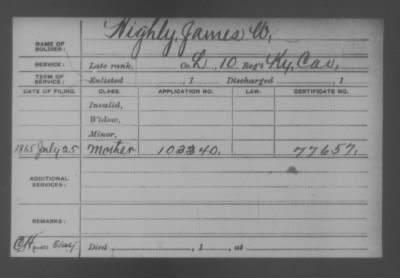 Highly, James W.
NAME OF SOLDIER:
SERVICE: Late rank, Co. L, 10 Reg't Ky. Cav.
TERM OF SERVICE: Enlisted , 1 Discharged , 1
DATE OF FILING. CLASS. APPLICATION NO. LAW. CERTIFICATE NO.
Invalid,
Widow,
Minor,
1865 July 25 Mother 103340. 77657.
ADDITIONAL SERVICES:
REMARKS:
Died , 1 , at